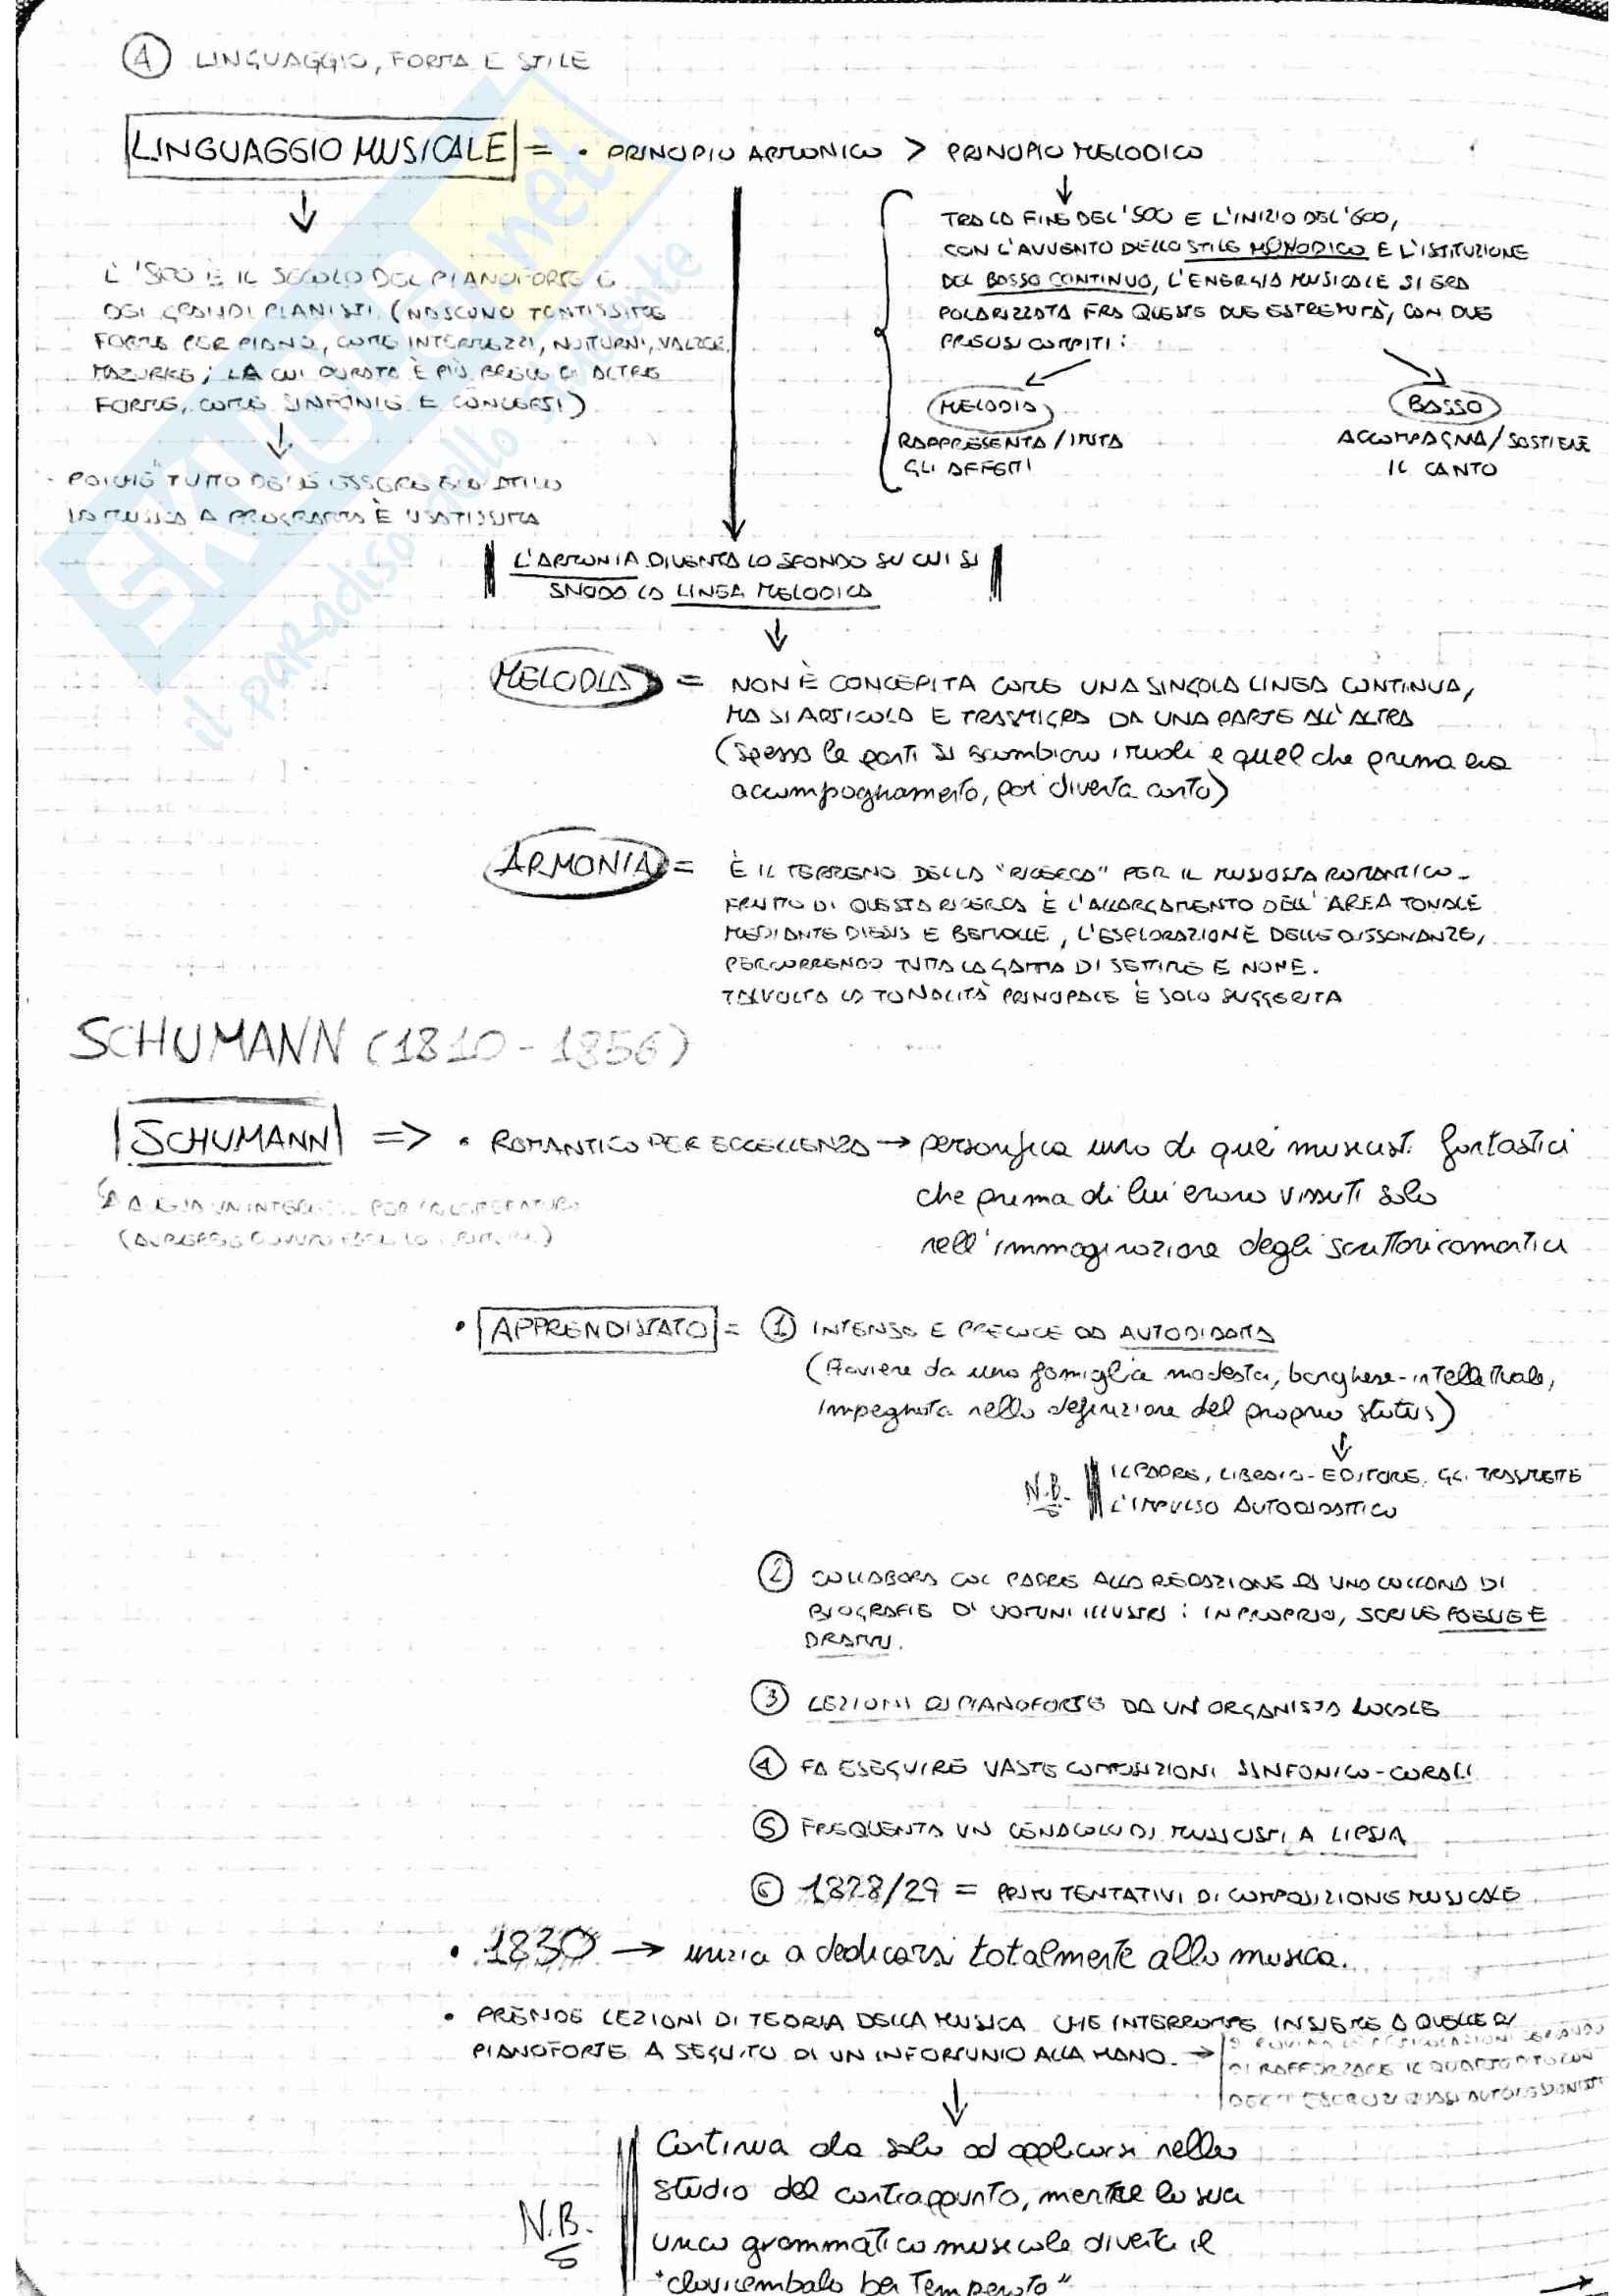 4 LINGUAGGIO, FORMA E STILE
LINGUAGGIO MUSICALE = • PRINCIPIO ARMONICO > PRINCIPIO MELODICO
TRA LA FINE DEL '500 E L'INIZIO DEL '600,
CON L'AVVENTO DELLO STILE MONODICO E L'ISTITUZIONE
DEL BASSO CONTINUO, L'ENERGIA MUSICALE SI ERA
POLARIZZATA FRA QUESTE DUE ESTREMITÀ, CON DUE
PRECISI COMPITI:
MELODIA
RAPPRESENTA/IMITA
GLI AFFETTI
BASSO
ACCOMPAGNA/SOSTIENE
IL CANTO
L'800 È IL SECOLO DEL PIANOFORTE E
DEI GRANDI PIANISTI (NASCONO TANTISSIME
FORME PER PIANO, COME INTERMEZZI, NOTTURNI, VALZER,
MAZURKE; LA CUI DURATA È PIÙ BREVE DI ALTRE
FORME, COME SINFONIE E CONCERTI)
POICHÈ TUTTO DEVE ESSERE
LA MUSICA A PROGRAMMA È USATISSIMA
L'ARMONIA DIVENTA LO SFONDO SU CUI SI
SNODA LA LINEA MELODICA
MELODIA = NON È CONCEPITA COME UNA SINGOLA LINEA CONTINUA,
MA SI ARTICOLA E TRASMIGRA DA UNA PARTE ALL'ALTRA
(spesso le parti si scambiano i ruoli e quel che prima era
accompagnamento, poi diventa canto)
ARMONIA = È IL TERRENO DELLA "RICERCA" PER IL MUSICISTA ROMANTICO.
FRUTTO DI QUESTA RICERCA È L'ALLARGAMENTO DELL'AREA TONALE
MEDIANTE DIESIS E BEMOLLE, L'ESPLORAZIONE DELLE DISSONANZE,
PERCORRENDO TUTTA LA GAMMA DI SETTIME E NONE.
TALVOLTA LA TONALITÀ PRINCIPALE È SOLO SUGGERITA
SCHUMANN (1810-1856)
SCHUMANN => • ROMANTICO PER ECCELLENZA → personifica uno di quei musicisti fantastici
che prima di lui erano vissuti solo
nell'immaginazione degli scrittori romantici
UN INTERESSE PER LA LETTERATURA
• APPRENDISTATO = 1 INTENSO E PRECOCE DA AUTODIDATTA
(Proviene da una famiglia modesta, borghese-intellettuale,
impegnata nella definizione del proprio status)
N.B. IL PADRE, LIBRAIO-EDITORE, GLI TRASMETTE
L'IMPULSO AUTODIDATTICO
2 COLLABORA COL PADRE ALLA REDAZIONE DI UNA COLLANA DI
BIOGRAFIE DI UOMINI ILLUSTRI: IN PROPRIO, SCRIVE POESIE E
DRAMMI.
3 LEZIONI DI PIANOFORTE DA UN ORGANISTA LOCALE
4 FA ESEGUIRE VASTE COMPOSIZIONI SINFONICO-CORALI
5 FREQUENTA UN CENACOLO DI MUSICISTI A LIPSIA
6 1828/29 = PRIMI TENTATIVI DI COMPOSIZIONE MUSICALE
• 1830 → inizia a dedicarsi totalmente alla musica.
• PRENDE LEZIONI DI TEORIA DELLA MUSICA CHE INTERROMPE INSIEME A QUELLE DI
PIANOFORTE A SEGUITO DI UN INFORTUNIO ALLA MANO. →
SI ROVINA LE ARTICOLAZIONI CERCANDO
DI RAFFORZARE IL QUARTO DITO CON
DEGLI ESERCIZI QUASI AUTOLESIONISTI
N.B. Continua da solo ad applicarsi nello
studio del contrappunto, mentre la sua
unica grammatica musicale diventa il
"clavicembalo ben temperato"
SKUOLA.net
il paradiso dello studente